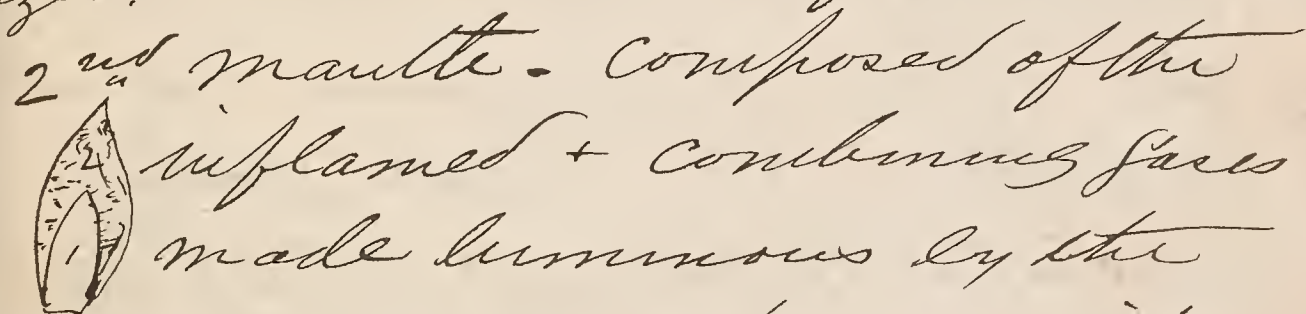 2nd mantle. Composed of the
inflamed + combining gases
made luminous by the
2
1
a